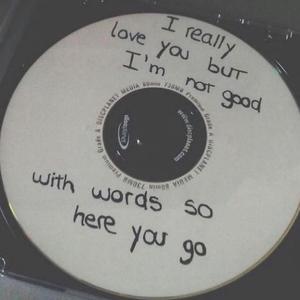 I really
love you but
I'm not good
Premium Grade A DISCPLANET MEDIA 80min 730MB Premium Grade A DISCPLANET MEDIA 80min 730MB
www.discplanet.com
with words so
here you go